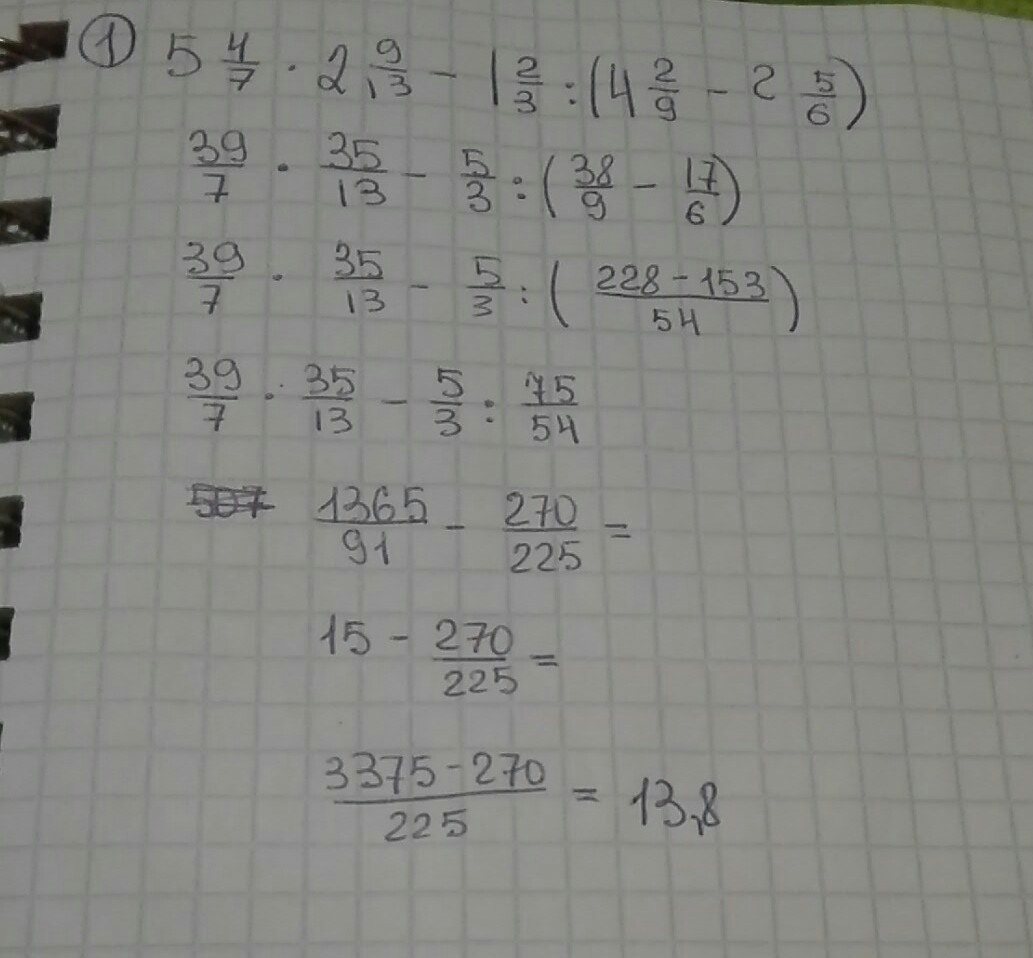 ① 5 4/7 · 2 9/13 - 1 2/3 : (4 2/9 - 2 5/6)
39/7 · 35/13 - 5/3 : (38/9 - 17/6)
39/7 · 35/13 - 5/3 : ((228 - 153)/54)
39/7 · 35/13 - 5/3 : 75/54
1365/91 - 270/225 =
15 - 270/225 =
(3375 - 270)/225 = 13,8